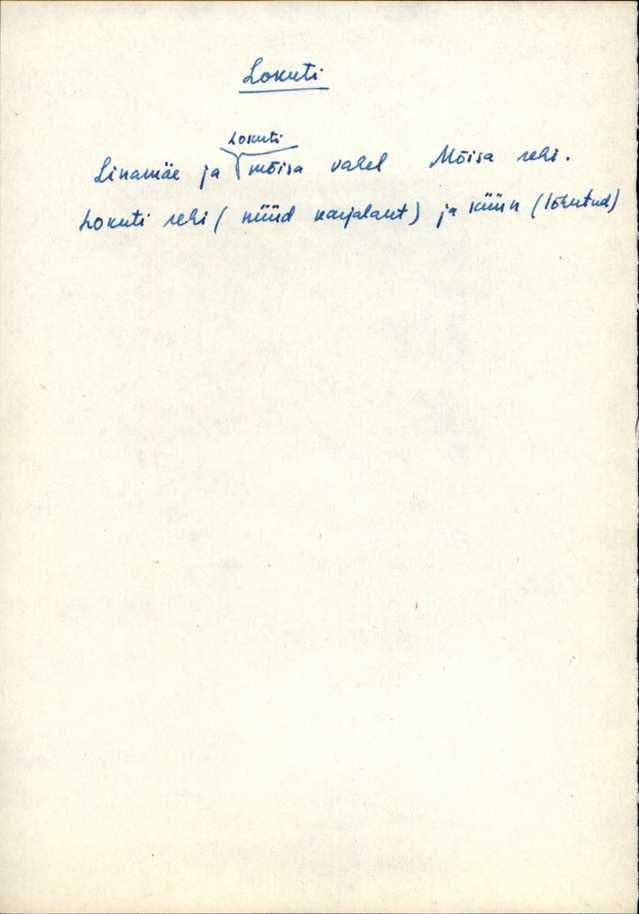 Lokuti
Linamäe ja Lokuti mõisa vahel Mõisa rehi.
Lokuti rehi (nüüd karjalaut) ja küün (lõhutud)